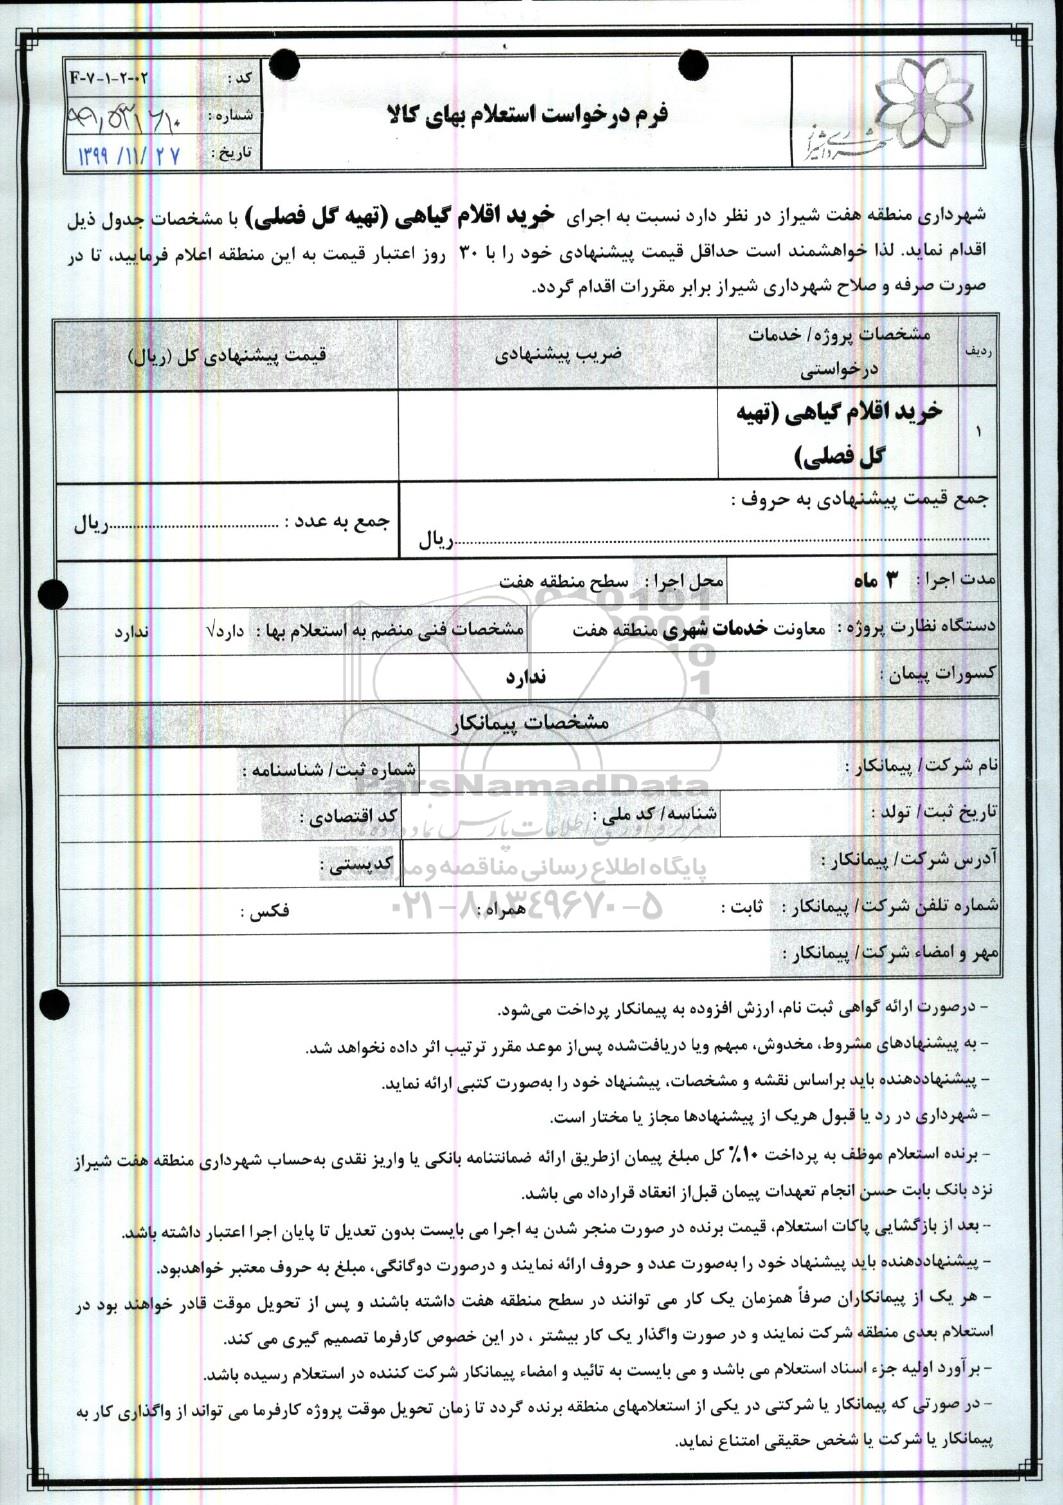 شهرداری شیراز
فرم درخواست استعلام بهای کالا
کد : F-۷-۱-۲-۰۲
شماره :
تاریخ : ۱۳۹۹/۱۱/۲۷
شهرداری منطقه هفت شیراز در نظر دارد نسبت به اجرای خرید اقلام گیاهی (تهیه گل فصلی) با مشخصات جدول ذیل
اقدام نماید. لذا خواهشمند است حداقل قیمت پیشنهادی خود را با ۳۰ روز اعتبار قیمت به این منطقه اعلام فرمایید، تا در
صورت صرفه و صلاح شهرداری شیراز برابر مقررات اقدام گردد.
ردیف
مشخصات پروژه/ خدمات
درخواستی
ضریب پیشنهادی
قیمت پیشنهادی کل (ریال)
۱
خرید اقلام گیاهی (تهیه
گل فصلی)
جمع قیمت پیشنهادی به حروف :
..........ریال
جمع به عدد : ..........ریال
مدت اجرا : ۳ ماه
محل اجرا : سطح منطقه هفت
دستگاه نظارت پروژه : معاونت خدمات شهری منطقه هفت
مشخصات فنی منضم به استعلام بها : دارد√ ندارد
کسورات پیمان : ندارد
مشخصات پیمانکار
نام شرکت/ پیمانکار :
شماره ثبت/ شناسنامه :
ParsNamadData
تاریخ ثبت/ تولد :
شناسه/ کد ملی :
کد اقتصادی :
آدرس شرکت/ پیمانکار :
کدپستی :
پایگاه اطلاع رسانی مناقصه و مزایده
شماره تلفن شرکت/ پیمانکار : ثابت : همراه : فکس :
۰۲۱-۸۸۳۴۹۶۷۰-۵
مهر و امضاء شرکت/ پیمانکار :
- درصورت ارائه گواهی ثبت نام، ارزش افزوده به پیمانکار پرداخت می‌شود.
- به پیشنهادهای مشروط، مخدوش، مبهم ویا دریافت‌شده پس‌از موعد مقرر ترتیب اثر داده نخواهد شد.
- پیشنهاددهنده باید براساس نقشه و مشخصات، پیشنهاد خود را به‌صورت کتبی ارائه نماید.
- شهرداری در رد یا قبول هریک از پیشنهادها مجاز یا مختار است.
- برنده استعلام موظف به پرداخت ۱۰٪ کل مبلغ پیمان ازطریق ارائه ضمانتنامه بانکی یا واریز نقدی به‌حساب شهرداری منطقه هفت شیراز
نزد بانک بابت حسن انجام تعهدات پیمان قبل‌از انعقاد قرارداد می باشد.
- بعد از بازگشایی پاکات استعلام، قیمت برنده در صورت منجر شدن به اجرا می بایست بدون تعدیل تا پایان اجرا اعتبار داشته باشد.
- پیشنهاددهنده باید پیشنهاد خود را به‌صورت عدد و حروف ارائه نمایند و درصورت دوگانگی، مبلغ به حروف معتبر خواهدبود.
- هر یک از پیمانکاران صرفاً همزمان یک کار می توانند در سطح منطقه هفت داشته باشند و پس از تحویل موقت قادر خواهند بود در
استعلام بعدی منطقه شرکت نمایند و در صورت واگذار یک کار بیشتر ، در این خصوص کارفرما تصمیم گیری می کند.
- برآورد اولیه جزء اسناد استعلام می باشد و می بایست به تائید و امضاء پیمانکار شرکت کننده در استعلام رسیده باشد.
- در صورتی که پیمانکار یا شرکتی در یکی از استعلامهای منطقه برنده گردد تا زمان تحویل موقت پروژه کارفرما می تواند از واگذاری کار به
پیمانکار یا شرکت یا شخص حقیقی امتناع نماید.